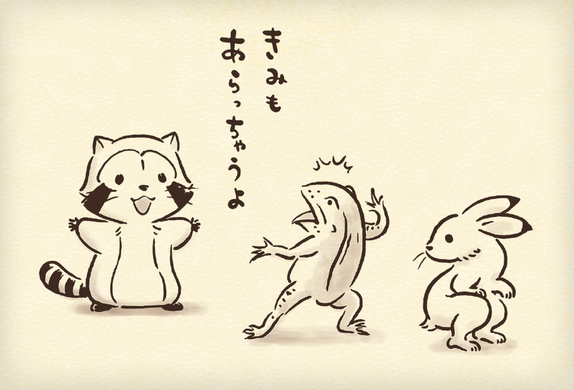 きみも
あらっちゃうよ